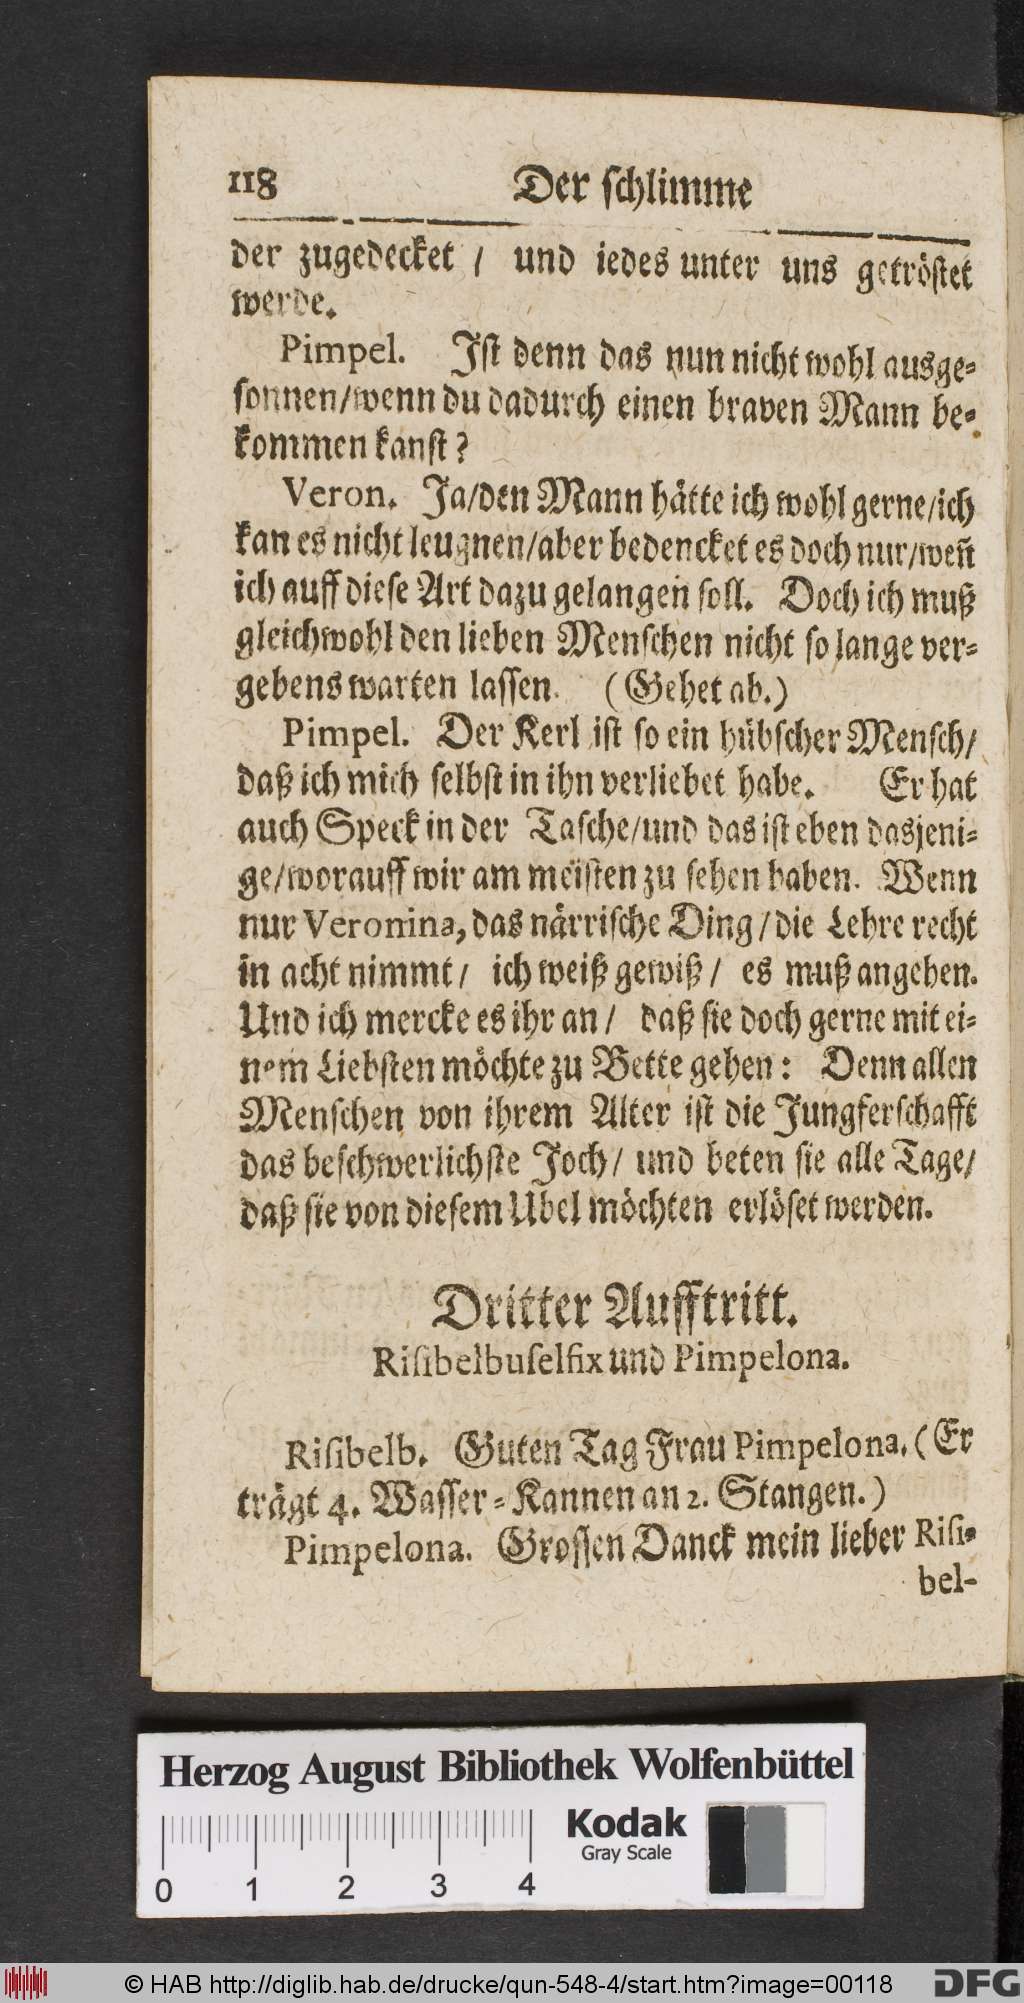 118 Der ſchlimme
der zugedecket / und iedes unter uns getröſtet
werde.
Pimpel. Iſt denn das nun nicht wohl ausge-
ſonnen/wenn du dadurch einen braven Mann be-
kommen kanſt?
Veron. Ja/den Mann hätte ich wohl gerne/ich
kan es nicht leugnen/aber bedencket es doch nur/weñ
ich auff dieſe Art dazu gelangen ſoll. Doch ich muß
gleichwohl den lieben Menſchen nicht ſo lange ver-
gebens warten laſſen. (Gehet ab.)
Pimpel. Der Kerl iſt ſo ein hübſcher Menſch/
daß ich mich ſelbſt in ihn verliebet habe. Er hat
auch Speck in der Taſche/und das iſt eben dasjeni-
ge/worauff wir am meiſten zu ſehen haben. Wenn
nur Veronina, das närriſche Ding/die Lehre recht
in acht nimmt/ ich weiß gewiß/ es muß angehen.
Und ich mercke es ihr an/ daß ſie doch gerne mit ei-
nem Liebſten möchte zu Bette gehen: Denn allen
Menſchen von ihrem Alter iſt die Jungferſchafft
das beſchwerlichſte Joch/ und beten ſie alle Tage/
daß ſie von dieſem Ubel möchten erlöſet werden.
Dritter Aufftritt.
Riſibelbuſelfix und Pimpelona.
Riſibelb. Guten Tag Frau Pimpelona. (Er
trägt 4. Waſſer-Kannen an 2. Stangen.)
Pimpelona. Groſſen Danck mein lieber Riſi-
bel-
Herzog August Bibliothek Wolfenbüttel
Kodak
Gray Scale
0 1 2 3 4
© HAB http://diglib.hab.de/drucke/qun-548-4/start.htm?image=00118
DFG